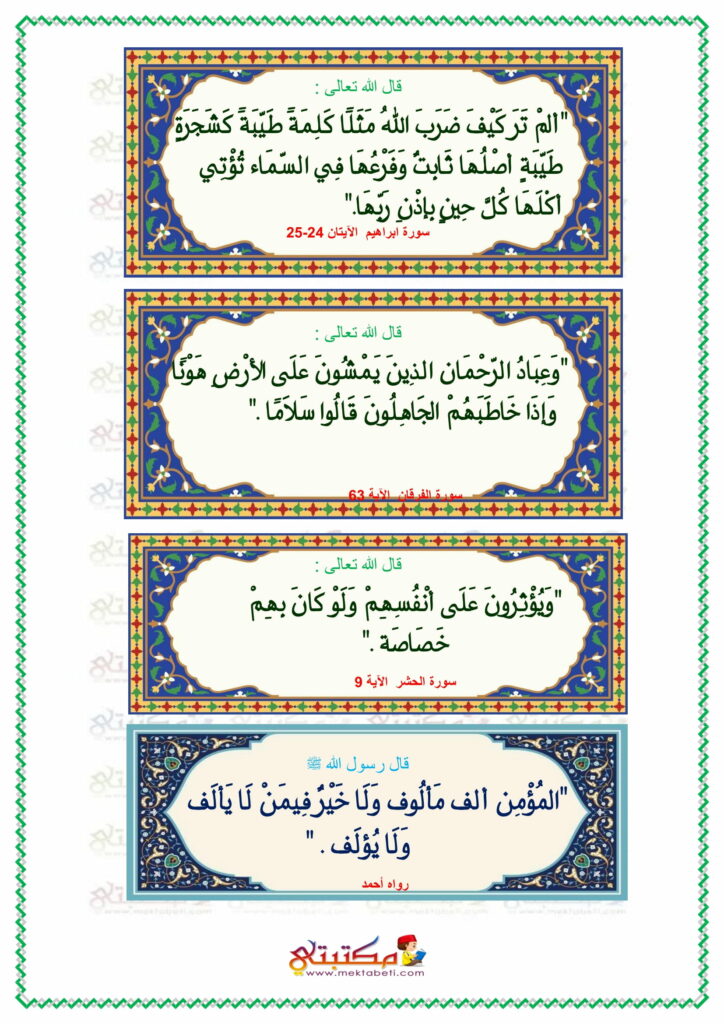 قال الله تعالى :
"الَمْ تَرَ كَيْفَ ضَرَبَ اللهُ مَثَلًا كَلِمَةً طَيِّبَةً كَشَجَرَةٍ
طَيِّبَةٍ اصْلُهَا ثَابِتٌ وَفَرْعُهَا فِي السَّمَاء تُؤْتِي
اكْلَهَا كُلَّ حِينٍ بِإِذْنِ رَبِّهَا."
سورة ابراهيم الآيتان 24-25
قال الله تعالى :
"وَعِبَادُ الرَّحْمَان الذِينَ يَمْشُونَ عَلَى الأَرْضِ هَوْنًا
وَإِذَا خَاطَبَهُمْ الجَاهِلُونَ قَالُوا سَلاَمًا ."
سورة الفرقان الآية 63
قال الله تعالى :
"وَيُؤْثِرُونَ عَلَى أَنْفُسِهِمْ وَلَوْ كَانَ بِهِمْ
خَصَاصَة ."
سورة الحشر الآية 9
قال رسول الله ﷺ
"المُؤْمِن ألف مَألُوف وَلَا خَيْرٌ فِيمَنْ لَا يَألَف
وَلَا يُؤلَف . "
رواه أحمد
مكتبتي
www.mektabeti.com